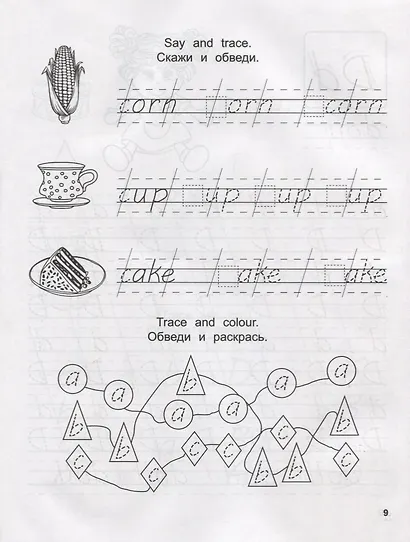 Say and trace.
Скажи и обведи.
corn orn corn
cup up up up
cake ake ake
Trace and colour.
Обведи и раскрась.
a b a a
a a a
b b c b
c c c c b b
9